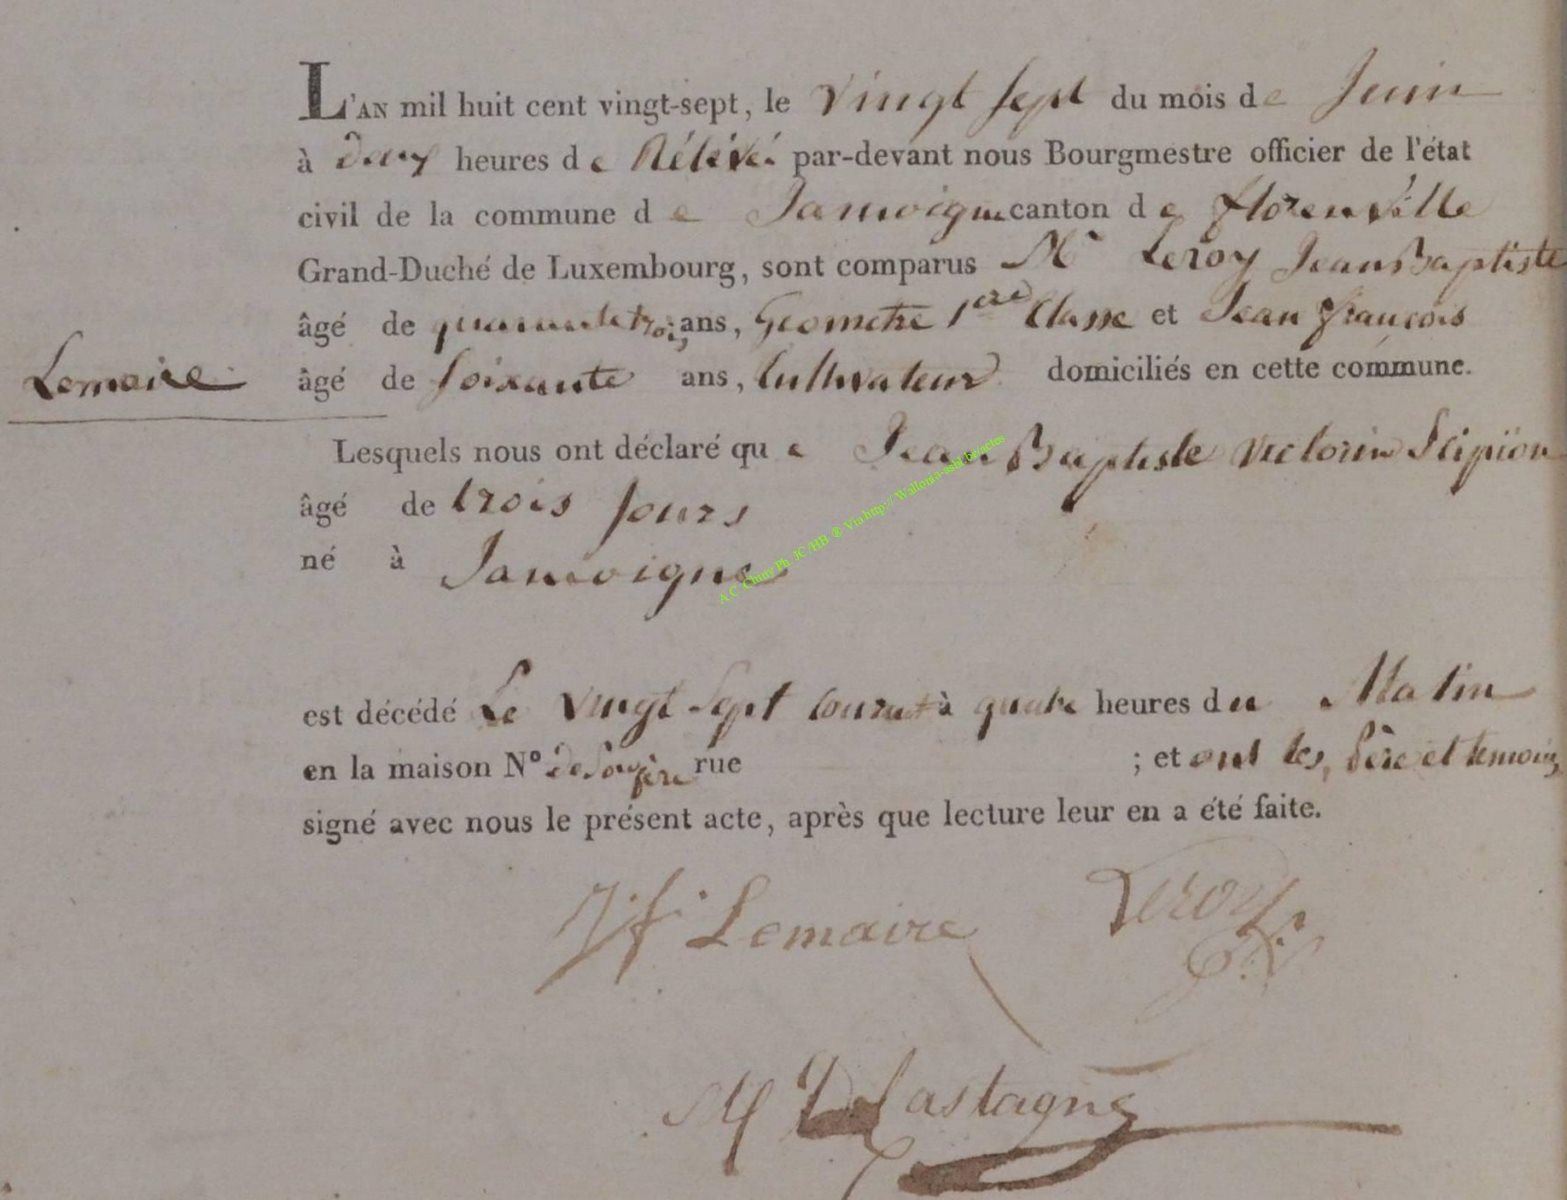 L'AN mil huit cent vingt-sept, le vingt sept du mois de Juin
à deux heures de Rélévé par-devant nous Bourgmestre officier de l'état
civil de la commune de Jamoigne canton de florenville
Grand-Duché de Luxembourg, sont comparus Mr Leroy Jean Baptiste
âgé de quarante trois ans, Geometre 1ere Classe et Jean françois
Lemaire âgé de soixante ans, Cultivateur domiciliés en cette commune.
Lesquels nous ont déclaré que Jean Baptiste Victorin Scipion
âgé de trois jours
né à Jamoigne
est décédé Le vingt sept courant à quatre heures du Matin
en la maison N° de son père rue ; et ont les père et temoin
signé avec nous le présent acte, après que lecture leur en a été faite.
J f Lemaire Leroy
Lastagne
A C Chiny Ph JC/HB ® Via http://Wallonia-asbl.be/actes